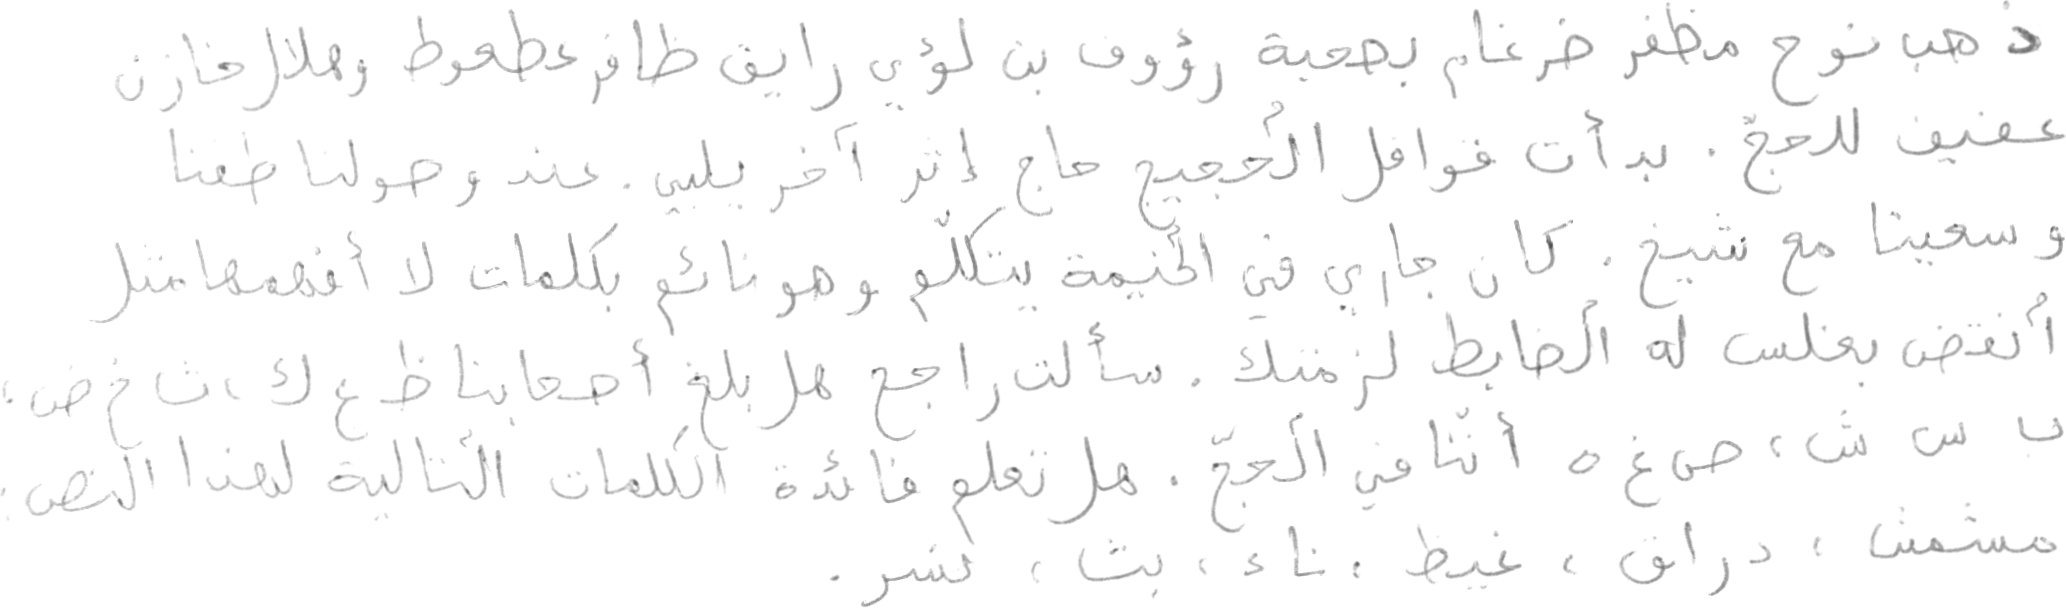 ذهب نوح مظفر ضرغام بصحبة رؤوف بن لؤي رايق ظافر عطعوط وهلال خازن
عفيف للحجّ. بدأت قوافل ألحجيج حاج إثر آخر يلبي. عند وصولنا طفنا
وسعينا مع شيخ. كان جاري في ألخيمة يتكلّم وهو نائم بكلمات لا أفهمها مثل
أنقض بغلس له ألضابط لزمتك. سألت راجح هل بلغ أصحابنا ظ ع ك، ث خ ض،
ب س ش، ص غ ه أنّنا في ألحجّ. هل تعلم فائدة ألكلمات ألتالية لهذا النص:
مشمش، دراق، غيظ، ناء، بث، نسر.